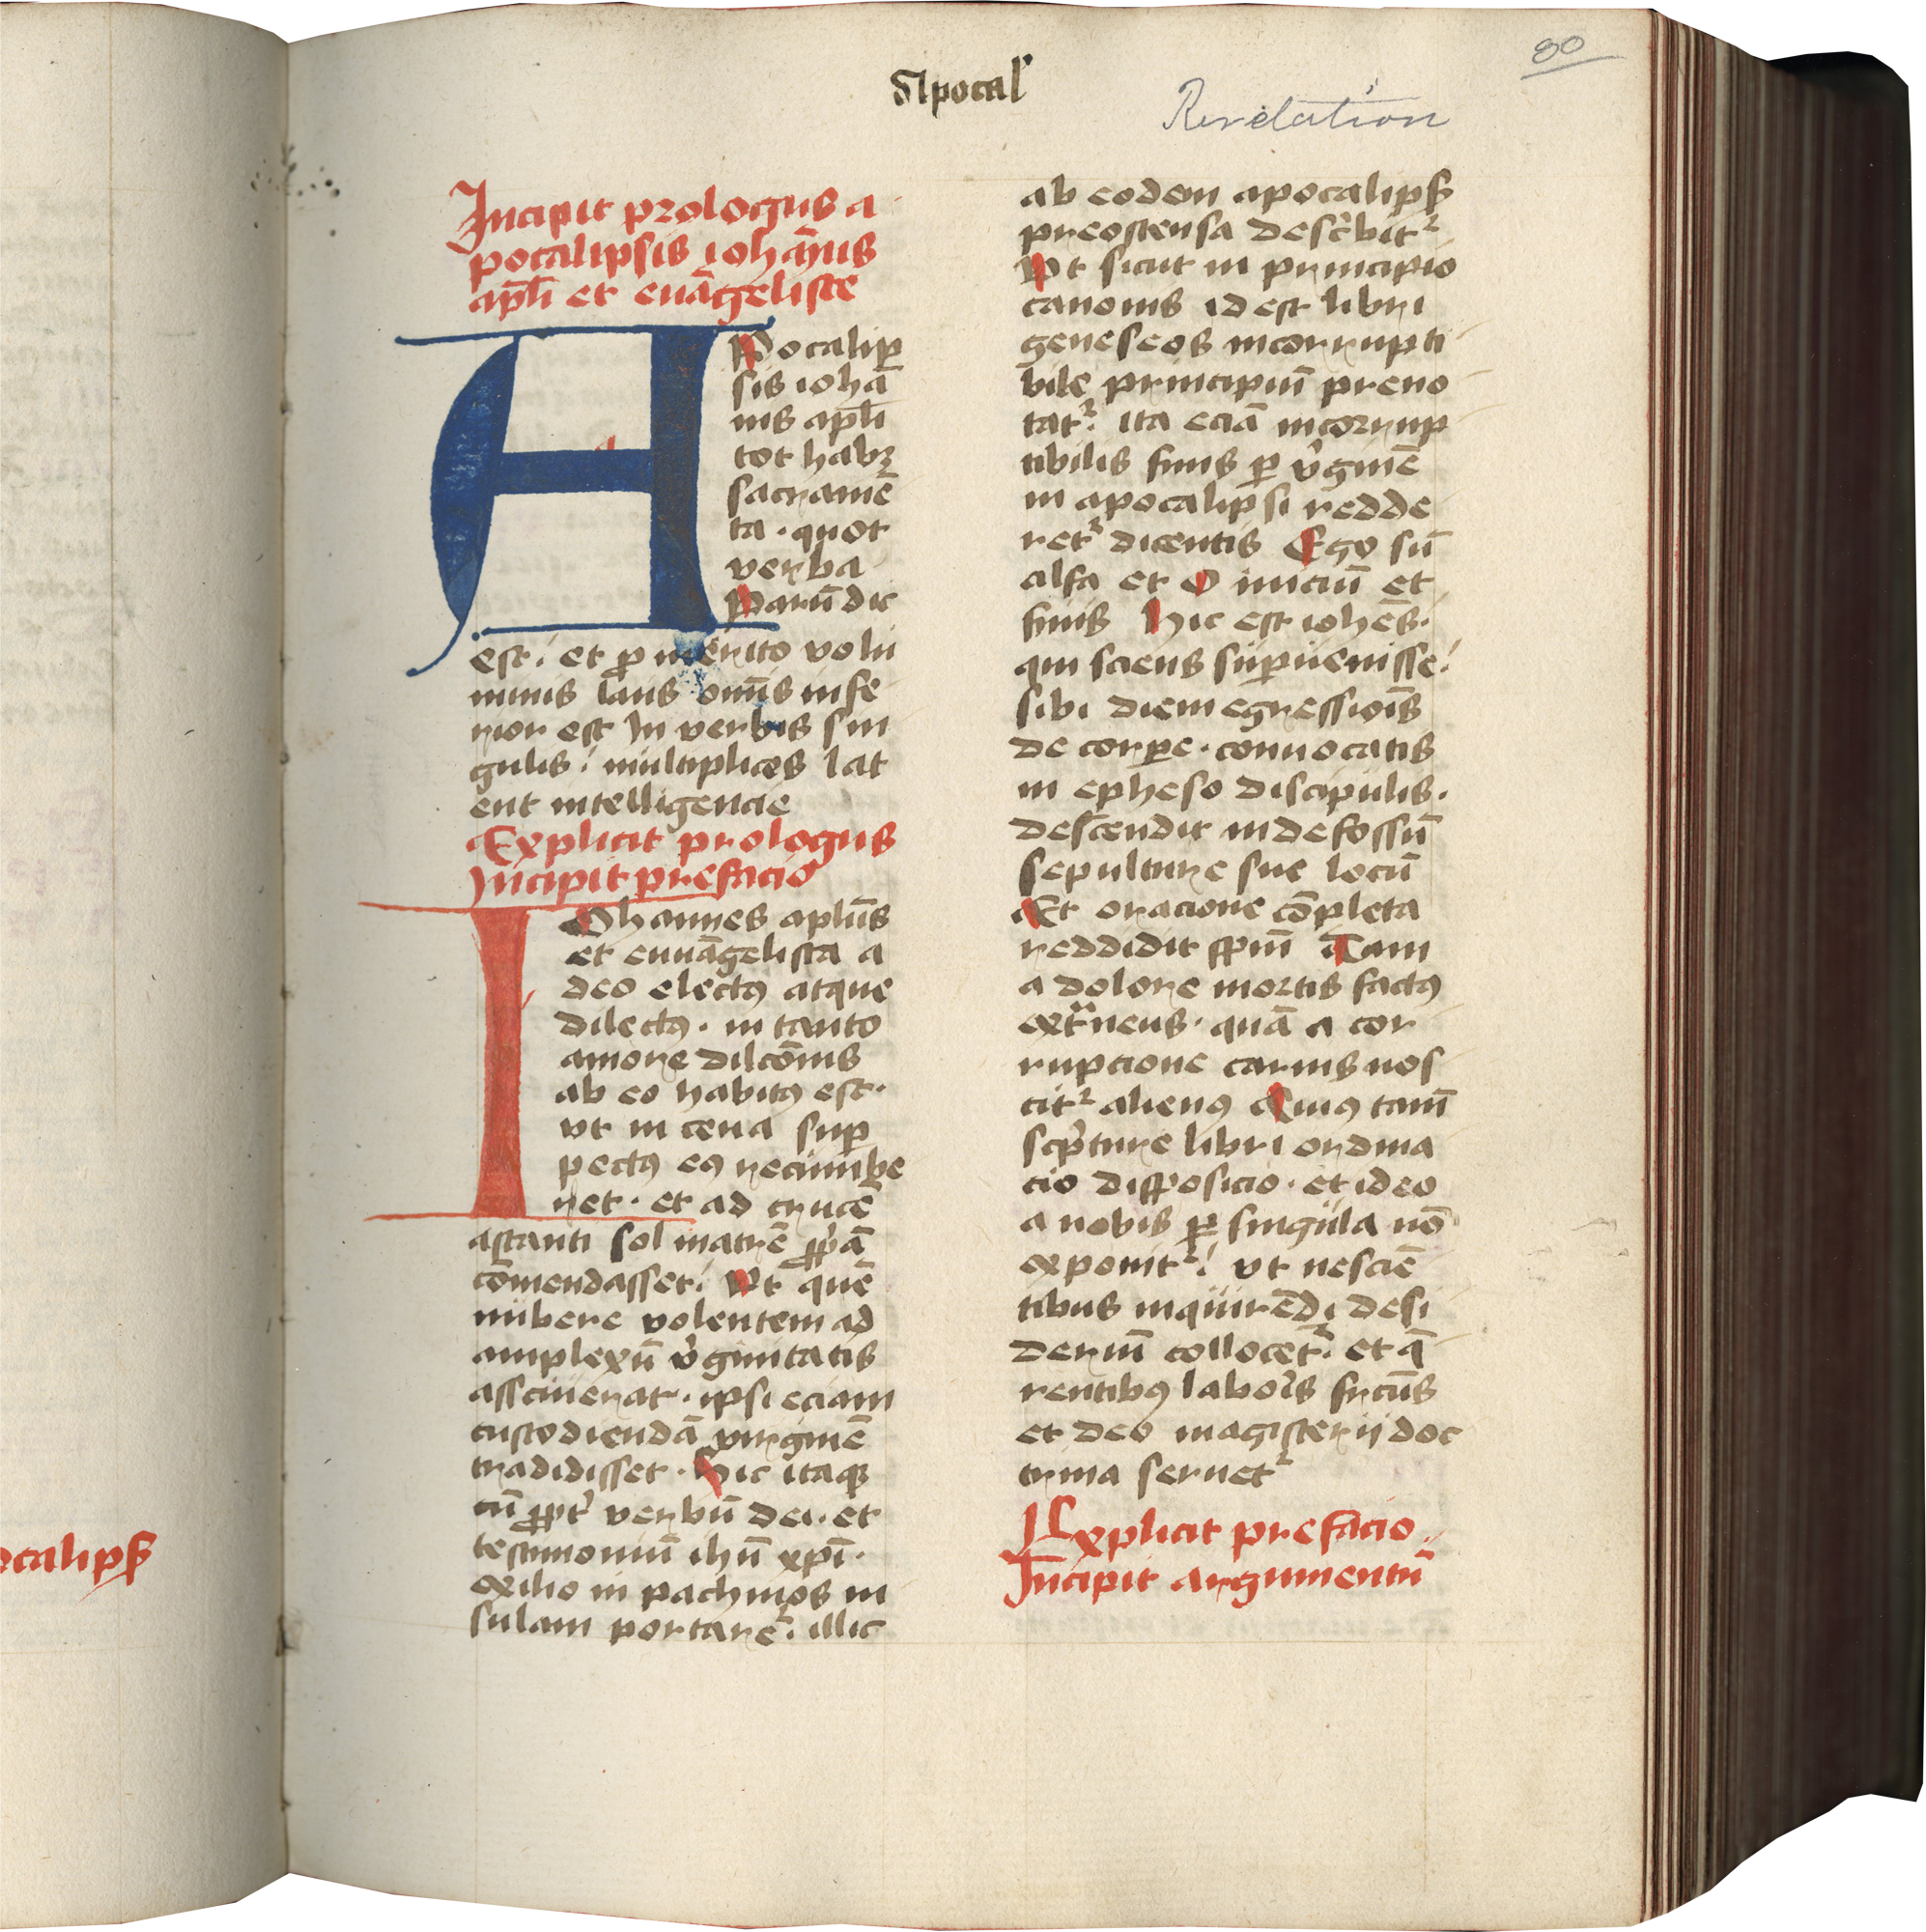 80
Apocal'
Revelation
ocalipß
Incipit prologus a
pocalipsis ioha͞nis
apl̄i et eua͞geliste
APocalip
sis ioha͞
nis apl̄i
tot habꝫ
sacrame͞
ta · quot
verba
Paru͞ dic
est. et ꝓ merito volu
minis laus om̄s infe
rior est In verbis sin
gulis. multiplices lat
ent intelligencie
Explicit prologus
Incipit prefacio
IOhannes aplu͞s
et euua͞gelista a
deo electꝰ atque
dilectꝰ. in tanto
amore dilco͞nis
ab eo habitꝰ est.
vt in cena suꝑ
pectꝰ eꝰ recumbe
ret. et ad cruce͞
astanti sol matre͞ ꝓpͥa͞
co͞mendasset. Vt que͞
nubere volentem ad
amplexu͞ vͥginitatis
assciuerat. ipsi eciam
custodienda͞ virgine͞
tradidisset. Hic itaqꝫ
cu͞ ꝓpt' verbu͞ dei. et
testimoniu͞ ihu͞ xpi͞.
exilio in pathmos in
sulam portaret᷑. illic
ab eodem apocalipß
preostensa descͥbit᷑
Vt sicut in principio
canonis id est libri
geneseos incorrupti
bile principiu͞ preno
tat᷑. ita ecia͞ incorrup
tibilis finis ꝑ vͥgine͞
in apocalipsi redde
ret᷑ dicentis Ego su͞
alfa et O iniciu͞ et
finis Hic est iohe͞s.
qui sciens suꝑuenisse.
sibi diem egressiōis
de corꝑe. conuocatis
in epheso discipulis.
descendit in defossu͞
sepulture sue locu͞
Et oracione co͞pleta
reddidit sp̄m Tam
a dolore mortis factꝰ
extᷓneus. qua͞ a cor
rupcione carnis nos
cit᷑ alienꝰ Cuiꝰ tam̄
scpͥture libri ordina
cio disposicio. et ideo
a nobis ꝑ singula no͞
exponit᷑. vt nescie͞
tibus inquire͞di desi
deriu͞ collocet᷑. et q̄
rentibꝰ laboͥs fruct̄s
et deo magisterij doc
trina seruet᷑
Explicit prefacio.
Incipit argumentu͞